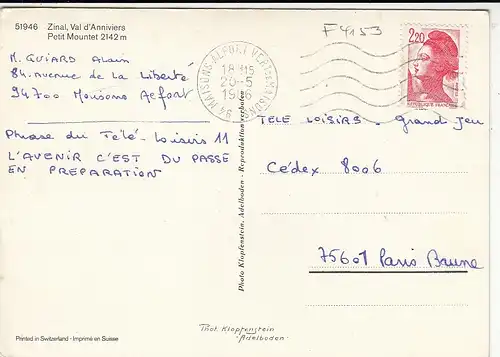 51946 Zinal, Val d'Anniviers
Petit Mountet 2142 m
M. GUIARD Alain
84. Avenue de la Liberté
94700 Maisons Alfort
Phrase du Télé-Loisirs 11
L'AVENIR C'EST DU PASSÉ
EN PREPARATION
F 4153
94 MAISONS-ALFORT
18H15
20-5
1986
2,20
REPUBLIQUE FRANÇAISE
TELE LOISIRS - Grand jeu
Cédex 8006
75601 Paris Brune
Photo Klopfenstein, Adelboden - Reproduktion verboten
Printed in Switzerland - Imprimé en Suisse
Phot. Klopfenstein
Adelboden